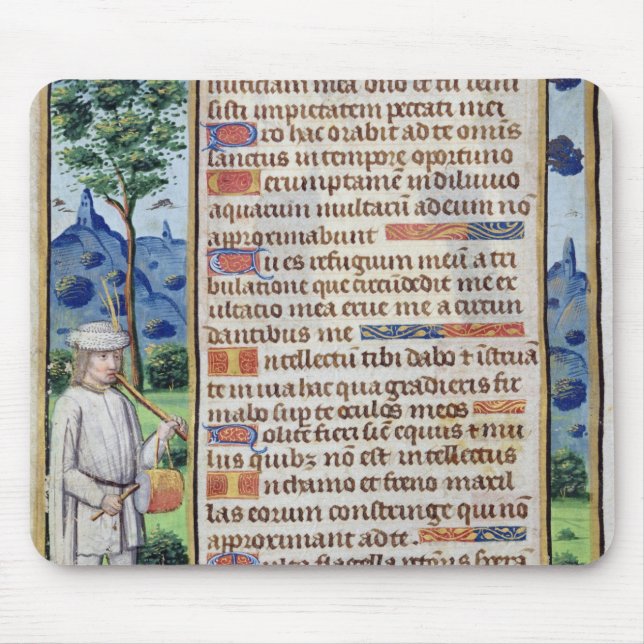 iusticiam mea dno et tu remi
sisti impietatem peccati mei
Pro hac orabit ad te omis
sanctus in tempore oportuno
Uerumptamē in diluuio
aquarum multarū ad eum nō
approximabunt
Tu es refugium meū a tri
bulatione que circūdedit me ex
ultatio mea erue me a circun
dantibus me
Intellectū tibi dabo et īstruā
te in uia hac qua gradieris fir
mabo sup te oculos meos
Nolite fieri sic̄ equus et mu
lus quibz nō est intellectus
In chamo et freno maxil
las eorum constringe qui nō
approximant ad te.
Multa flagella